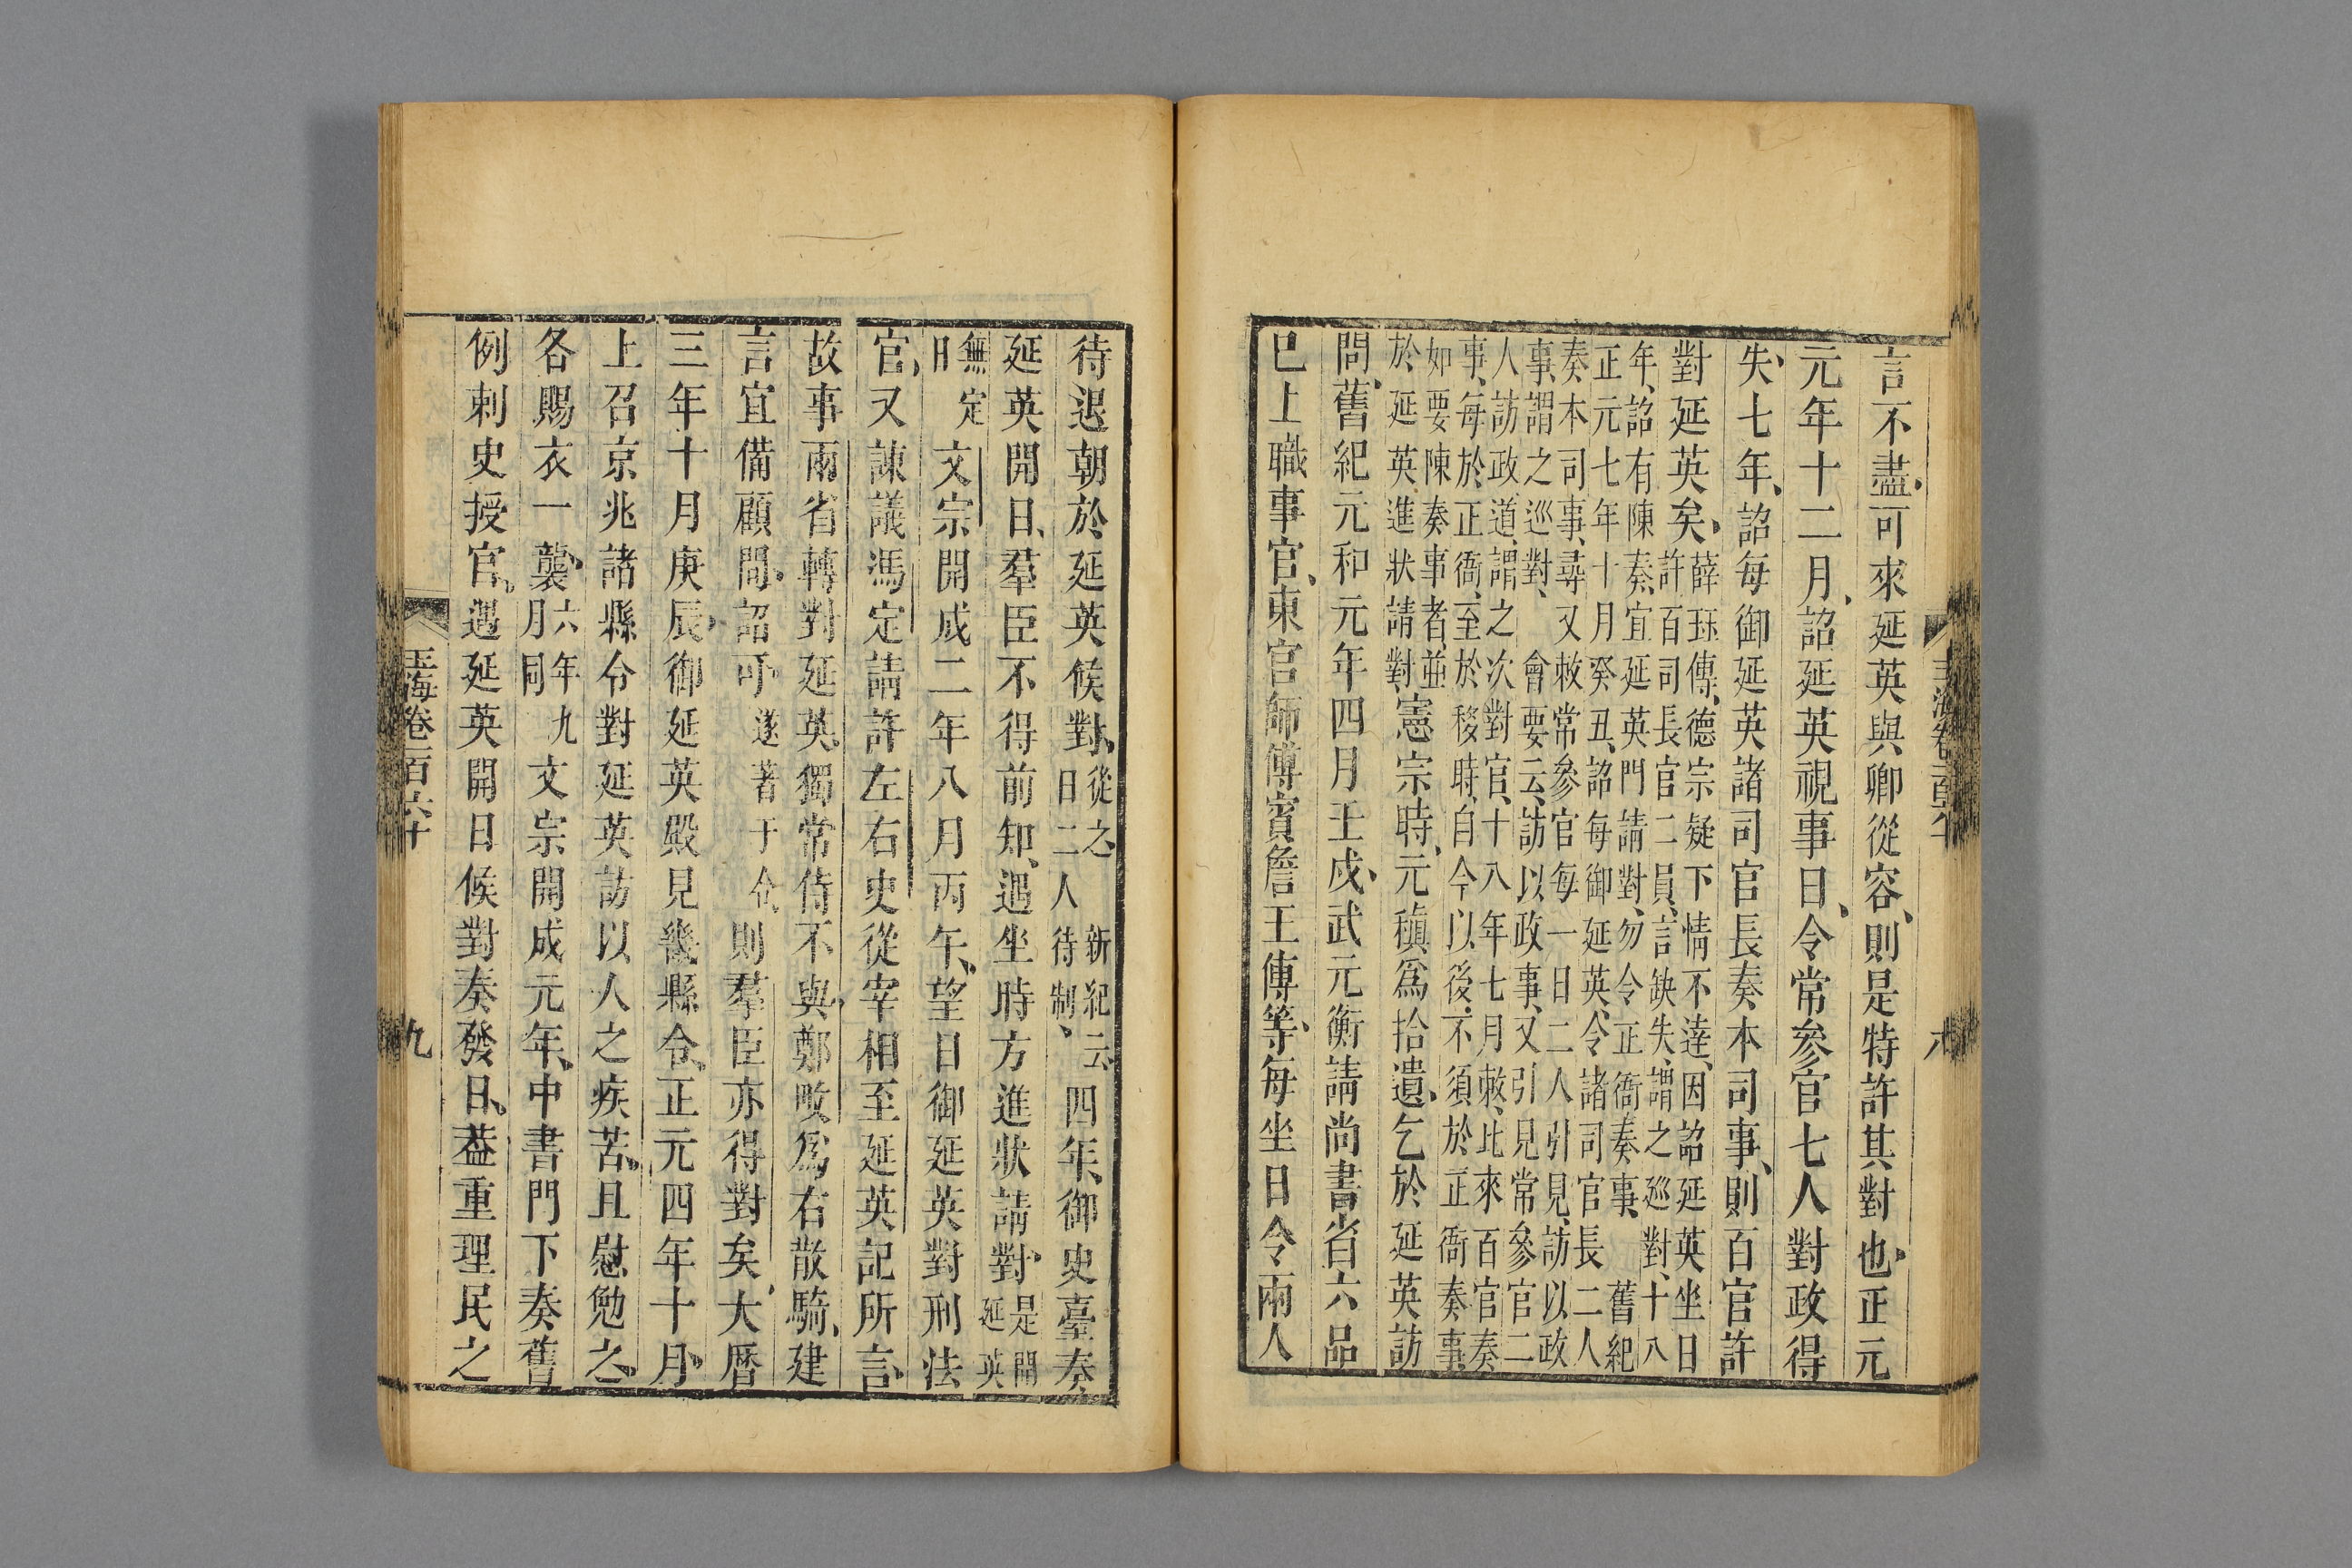 言不盡可來延英與卿從容則是特許其對也正元
元年十二月詔延英視事日令常參官七人對政得
失七年詔每御延英諸司官長奏本司事則百官許
對延英矣薛珏傳德宗疑下情不達因詔延英坐日
許百司長官二員言缺失謂之廵對十八
年詔有陳奏宜延英門請對勿令正衙奏事舊紀
正元七年十月癸丑詔每御延英令諸司官長二人
奏本司事尋又敕常參官每一日二人引見訪以政
事謂之巡對會要云訪以政事又引見常參官二
人訪政道謂之次對官十八年七月敕比來百官奏
事每於正衙至於移時自今以後不須於正衙奏事
如要陳奏事者並
於延英進狀請對憲宗時元稹爲拾遺乞於延英訪
問舊紀元和元年四月壬戌武元衡請尚書省六品
已上職事官東宮師傅賓詹王傅等每坐日令兩人
待退朝於延英候對從之新紀云
日二人待制四年御史臺奏
延英開日羣臣不得前知遇坐時方進狀請對是開
延英
無定
日文宗開成二年八月丙午望日御延英對刑法
官又諫議馮定請許左右史從宰相至延英記所言
故事兩省轉對延英獨常侍不與鄭畋爲右散騎建
言宜備顧問詔可遂著于令則羣臣亦得對矣大曆
三年十月庚辰御延英殿見畿縣令正元四年十月
上召京兆諸縣令對延英訪以人之疾苦且慰勉之
各賜衣一襲六年九
月同文宗開成元年中書門下奏舊
例刺史授官遇延英開日候對奏發日葢重理民之
玉海卷一百六十
九